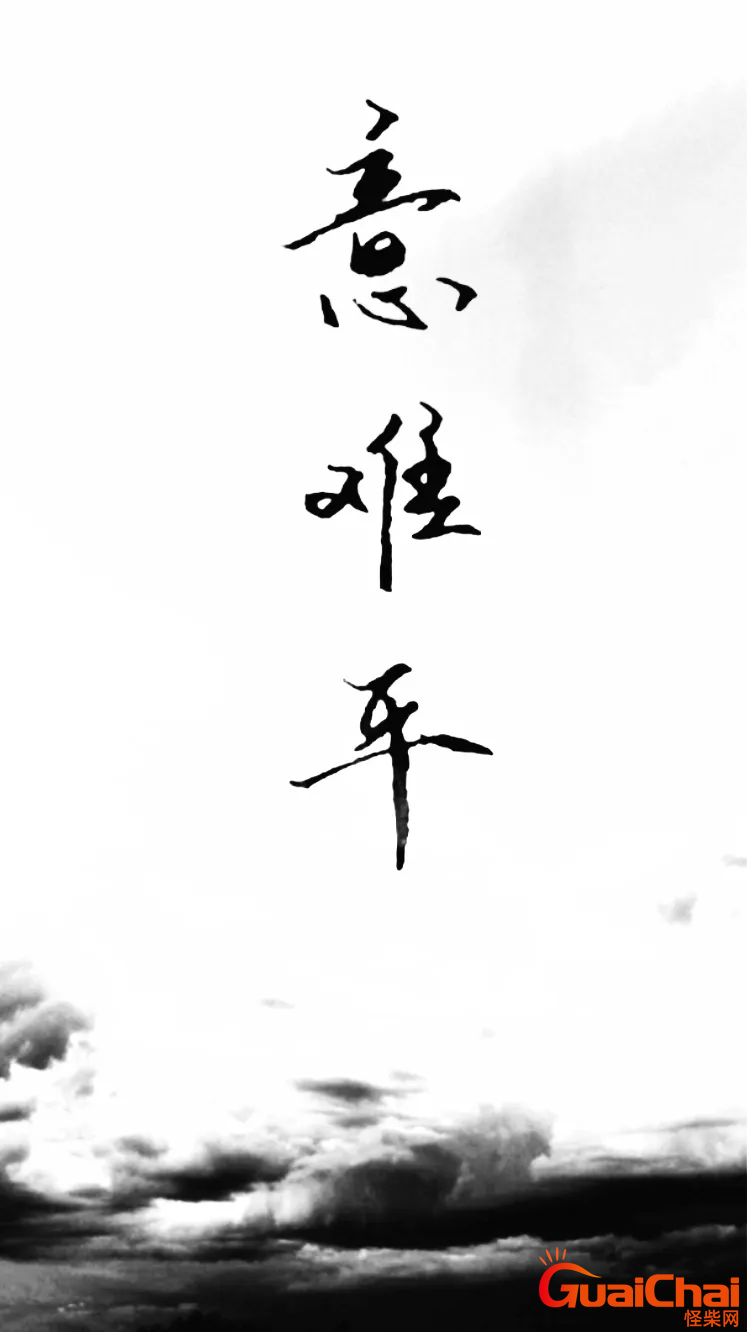 意难平
GuaiChai
怪柴网